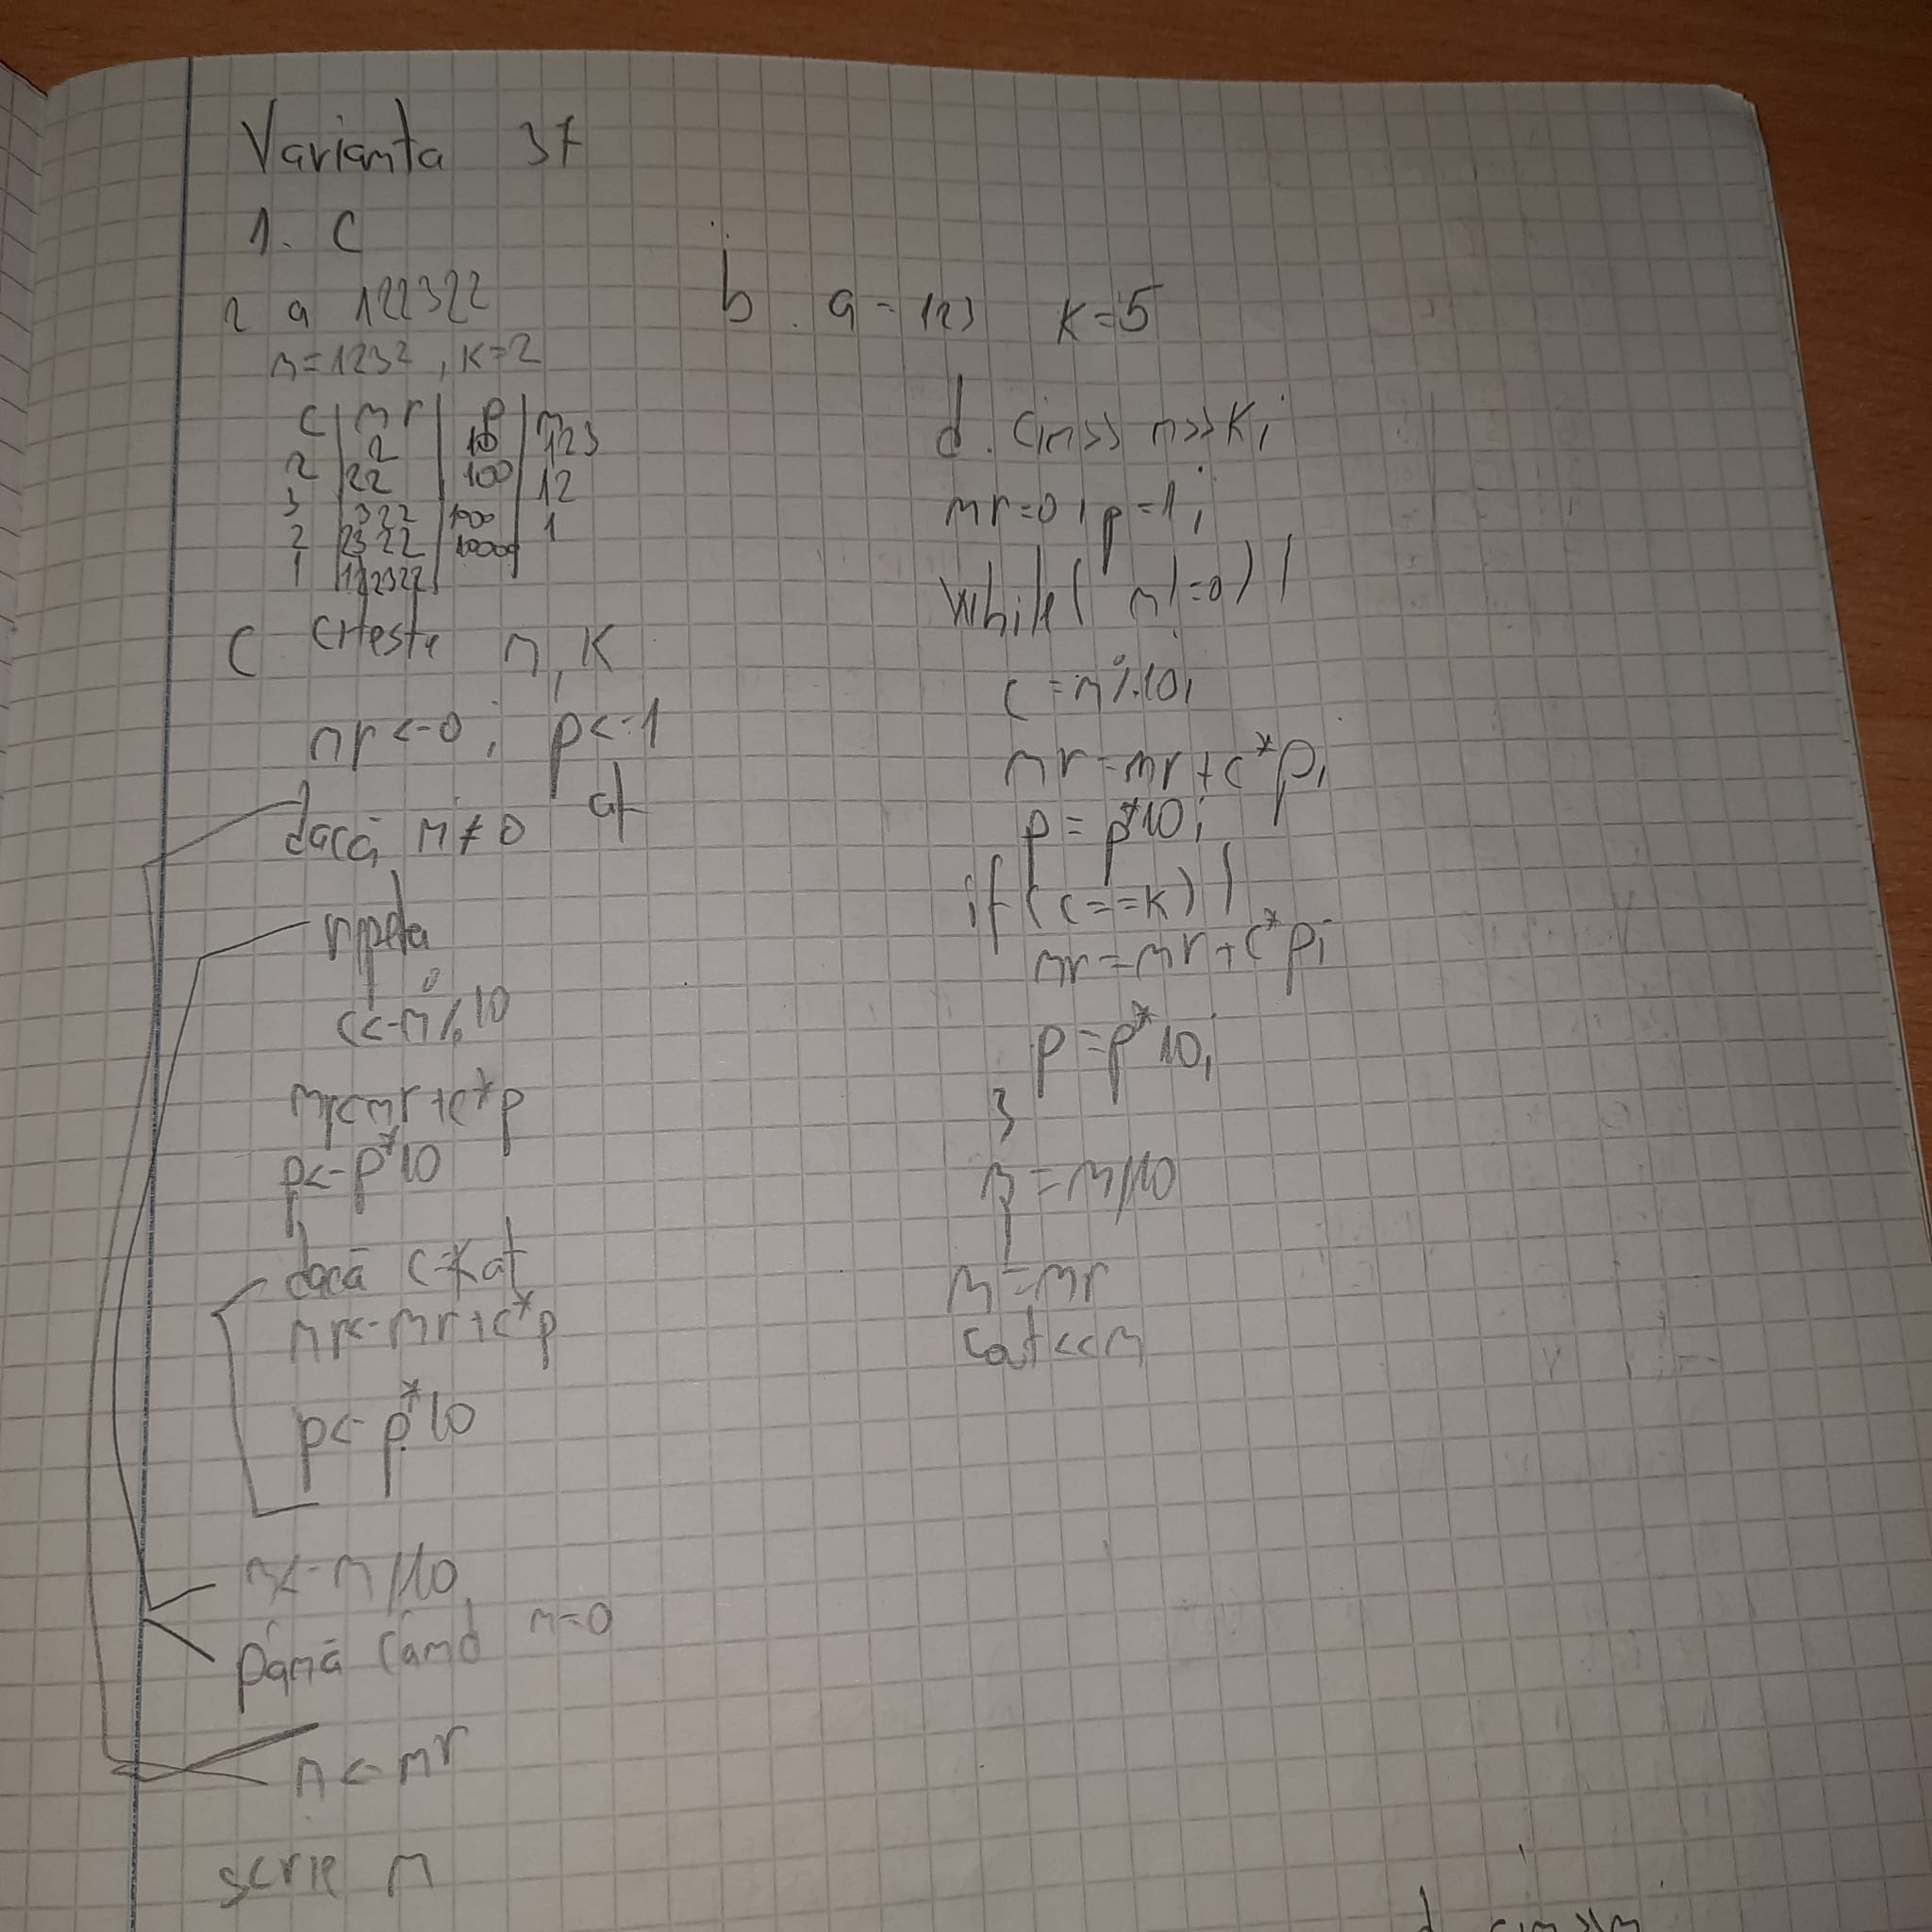 Varianta 37
1. C
2 a 122322
n=1232, K=2
c | nr | p | n
2 | 10 | 123
2 | 22 | 100 | 12
3 | 322 | 1000 | 1
2 | 2322 | 10000
1 | 122322
C citeste n, K
nr<-0; p<-1
dacă n≠0 at
repeta
c<-n%10
nr<-nr+c*p
p<-p*10
dacă c=K at
nr<-nr+c*p
p<-p*10
n<-n/10
până când n=0
n<-nr
scrie n
b. a=123 K=5
d. cin>>n>>K;
nr=0; p=1;
while(n!=0){
c=n%10;
nr=nr+c*p;
p=p*10;
if(c==K){
nr=nr+c*p;
p=p*10;
}
n=n/10
}
n=nr
cout<<n
d cin>>n